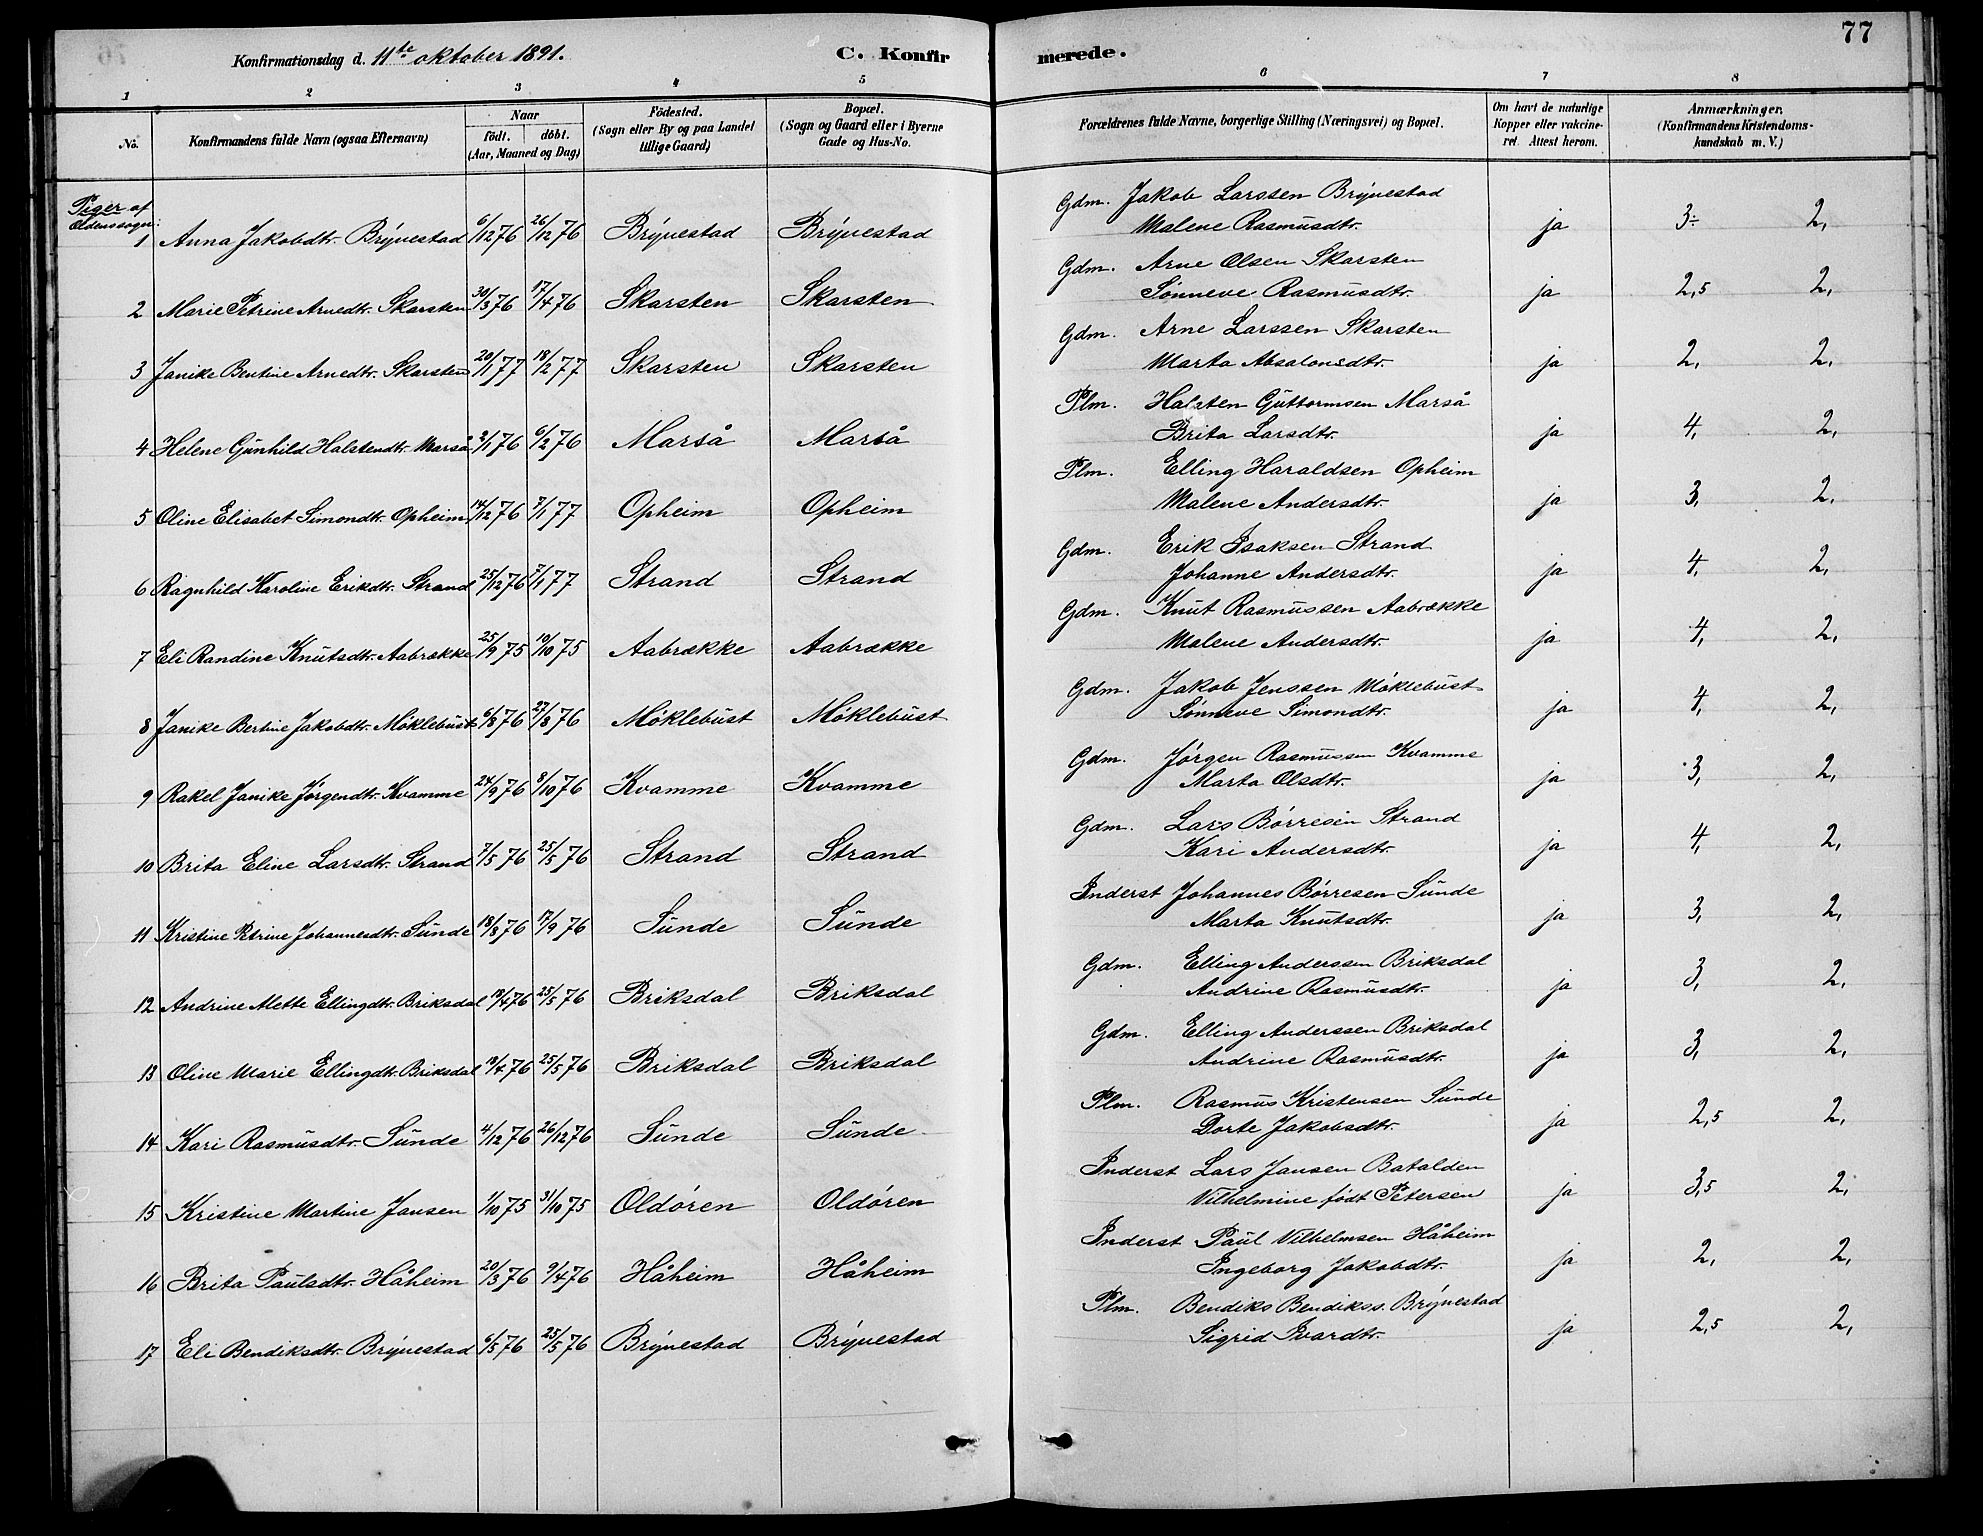 77
Konfirmationsdag d. 11te oktober 1891.
C. Konfirmerede.
1 2 3 4 5 6 7 8
No.
Konfirmandens fulde Navn (ogsaa Efternavn)
Naar
födt. döbt.
(Aar, Maaned og Dag)
Födested.
(Sogn eller By og paa Landet
tillige Gaard)
Bopæl.
(Sogn og Gaard eller i Byerne
Gade og Hus-No.
Forældrenes fulde Navne, borgerlige Stilling (Næringsvei) og Bopæl.
Om havt de naturlige
Kopper eller vakcine-
ret. Attest herom.
Anmærkninger.
(Konfirmandens Kristendoms-
kundskab m. V.)
Piger af
Oldenssogn:
1 Anna Jakobdtr. Brynestad 6/12 76 26/12 76 Brynestad Brynestad Gdm. Jakob Larssen Brynestad
Malene Rasmusdtr. ja 3÷ 2,
2 Marie Petrine Arnedtr. Skarsten 30/3 76 17/4 76 Skarsten Skarsten Gdm. Arne Olsen Skarsten
Sönneve Rasmusdtr. ja 2,5 2,
3 Janike Bentine Arnedtr. Skarsten 20/1 77 18/2 77 Skarsten Skarsten Gdm. Arne Larssen Skarsten
Marta Absalonsdtr. ja 2, 2,
4 Helene Gunhild Halstendtr. Marså 2/1 76 6/2 76 Marså Marså Plm. Halsten Guttormsen Marså
Brita Larsdtr. ja 4, 2,
5 Oline Elisabet Simondtr. Opheim 14/12 76 7/1 77 Opheim Opheim Plm. Elling Haraldsen Opheim
Malene Andersdtr. ja 3, 2,
6 Ragnhild Karoline Erikdtr. Strand 25/12 76 7/1 77 Strand Strand Gdm. Erik Isaksen Strand
Johanne Andersdtr. ja 4, 2,
7 Eli Randine Knutsdtr. Aabrække 25/9 75 10/10 75 Aabrække Aabrække Gdm. Knut Rasmussen Aabrække
Malene Andersdtr. ja 4, 2,
8 Janike Bertine Jakobdtr. Möklebust 6/8 76 27/8 76 Möklebust Möklebust Gdm. Jakob Jenssen Möklebust
Sönneve Simondtr. ja 4, 2,
9 Rakel Janike Jörgendtr. Kvamme 24/9 76 8/10 76 Kvamme Kvamme Gdm. Jörgen Rasmussen Kvamme
Marta Olsdtr. ja 3, 2,
10 Brita Eline Larsdtr. Strand 7/5 76 25/5 76 Strand Strand Gdm. Lars Börresen Strand
Kari Andersdtr. ja 4, 2,
11 Kristine Petrine Johannesdtr. Sunde 18/8 76 17/9 76 Sunde Sunde Inderst Johannes Börresen Sunde
Marta Knutsdtr. ja 3, 2,
12 Andrine Mette Ellingdtr. Briksdal 19/4 76 25/5 76 Briksdal Briksdal Gdm. Elling Anderssen Briksdal
Andrine Rasmusdtr. ja 3, 2,
13 Oline Marie Ellingdtr. Briksdal 19/4 76 25/5 76 Briksdal Briksdal Gdm. Elling Anderssen Briksdal
Andrine Rasmusdtr. ja 3, 2,
14 Kari Rasmusdtr. Sunde 4/12 76 26/12 76 Sunde Sunde Plm. Rasmus Kristensen Sunde
Dorte Jakobsdtr. ja 2,5 2,
15 Kristine Martine Jansen 1/10 75 31/10 75 Oldören Oldören Inderst Lars Jansen Batalden
Vilhelmine födt Petersen ja 3,5 2,
16 Brita Paulsdtr. Håheim 20/3 76 9/4 76 Håheim Håheim Inderst Paul Vilhelmsen Håheim
Ingeborg Jakobdtr. ja 2, 2,
17 Eli Bendiksdtr. Brynestad 6/5 76 25/5 76 Brynestad Brynestad Plm. Bendiks Bendikss. Brynestad
Sigrid Ivardtr. ja 2,5 2,